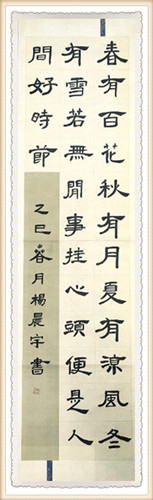 春有百花秋有月夏有凉風冬
有雪若無閒事挂心頭便是人
間好時節
乙巳春月楊晨宇書